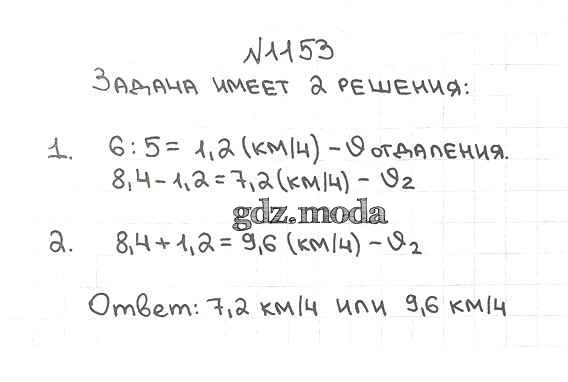 №1153
ЗАДАЧА ИМЕЕТ 2 РЕШЕНИЯ:
1. 6 : 5 = 1,2 (КМ/Ч) - ϑ ОТДАЛЕНИЯ.
8,4 - 1,2 = 7,2 (КМ/Ч) - ϑ₂
gdz.moda
2. 8,4 + 1,2 = 9,6 (КМ/Ч) - ϑ₂
Ответ: 7,2 КМ/Ч ИЛИ 9,6 КМ/Ч